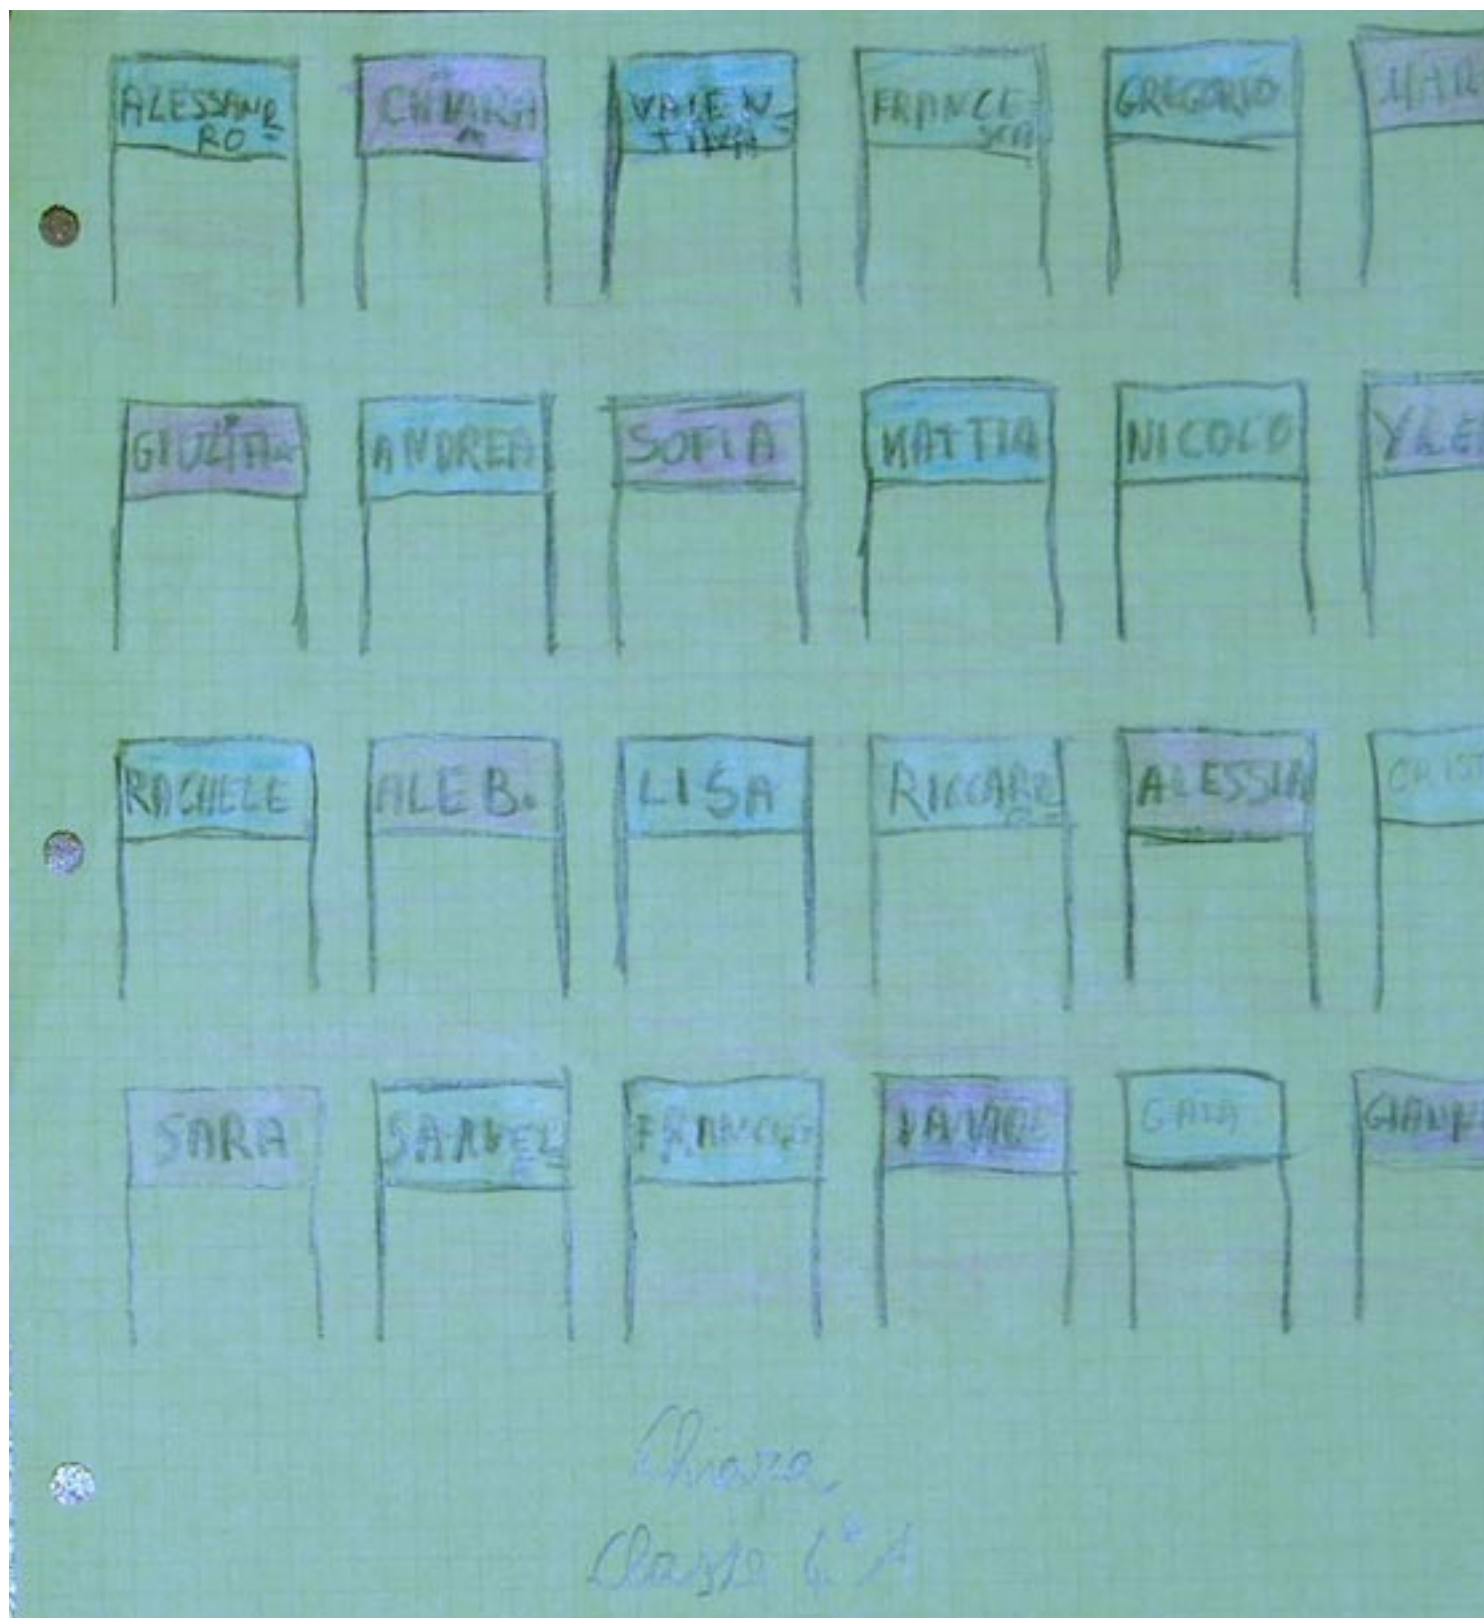 ALESSAND
RO
CHIARA
VALEN-
TINA
FRANCE-
SCA
GREGORIO
MAR
GIULIA
ANDREA
SOFIA
MATTIA
NICOLO
YLE
RACHELE
ALE B.
LISA
RICCARD
ALESSIA
CRIST
SARA
SAMUEL
DAVIDE
GAIA
Chiara
Classe A